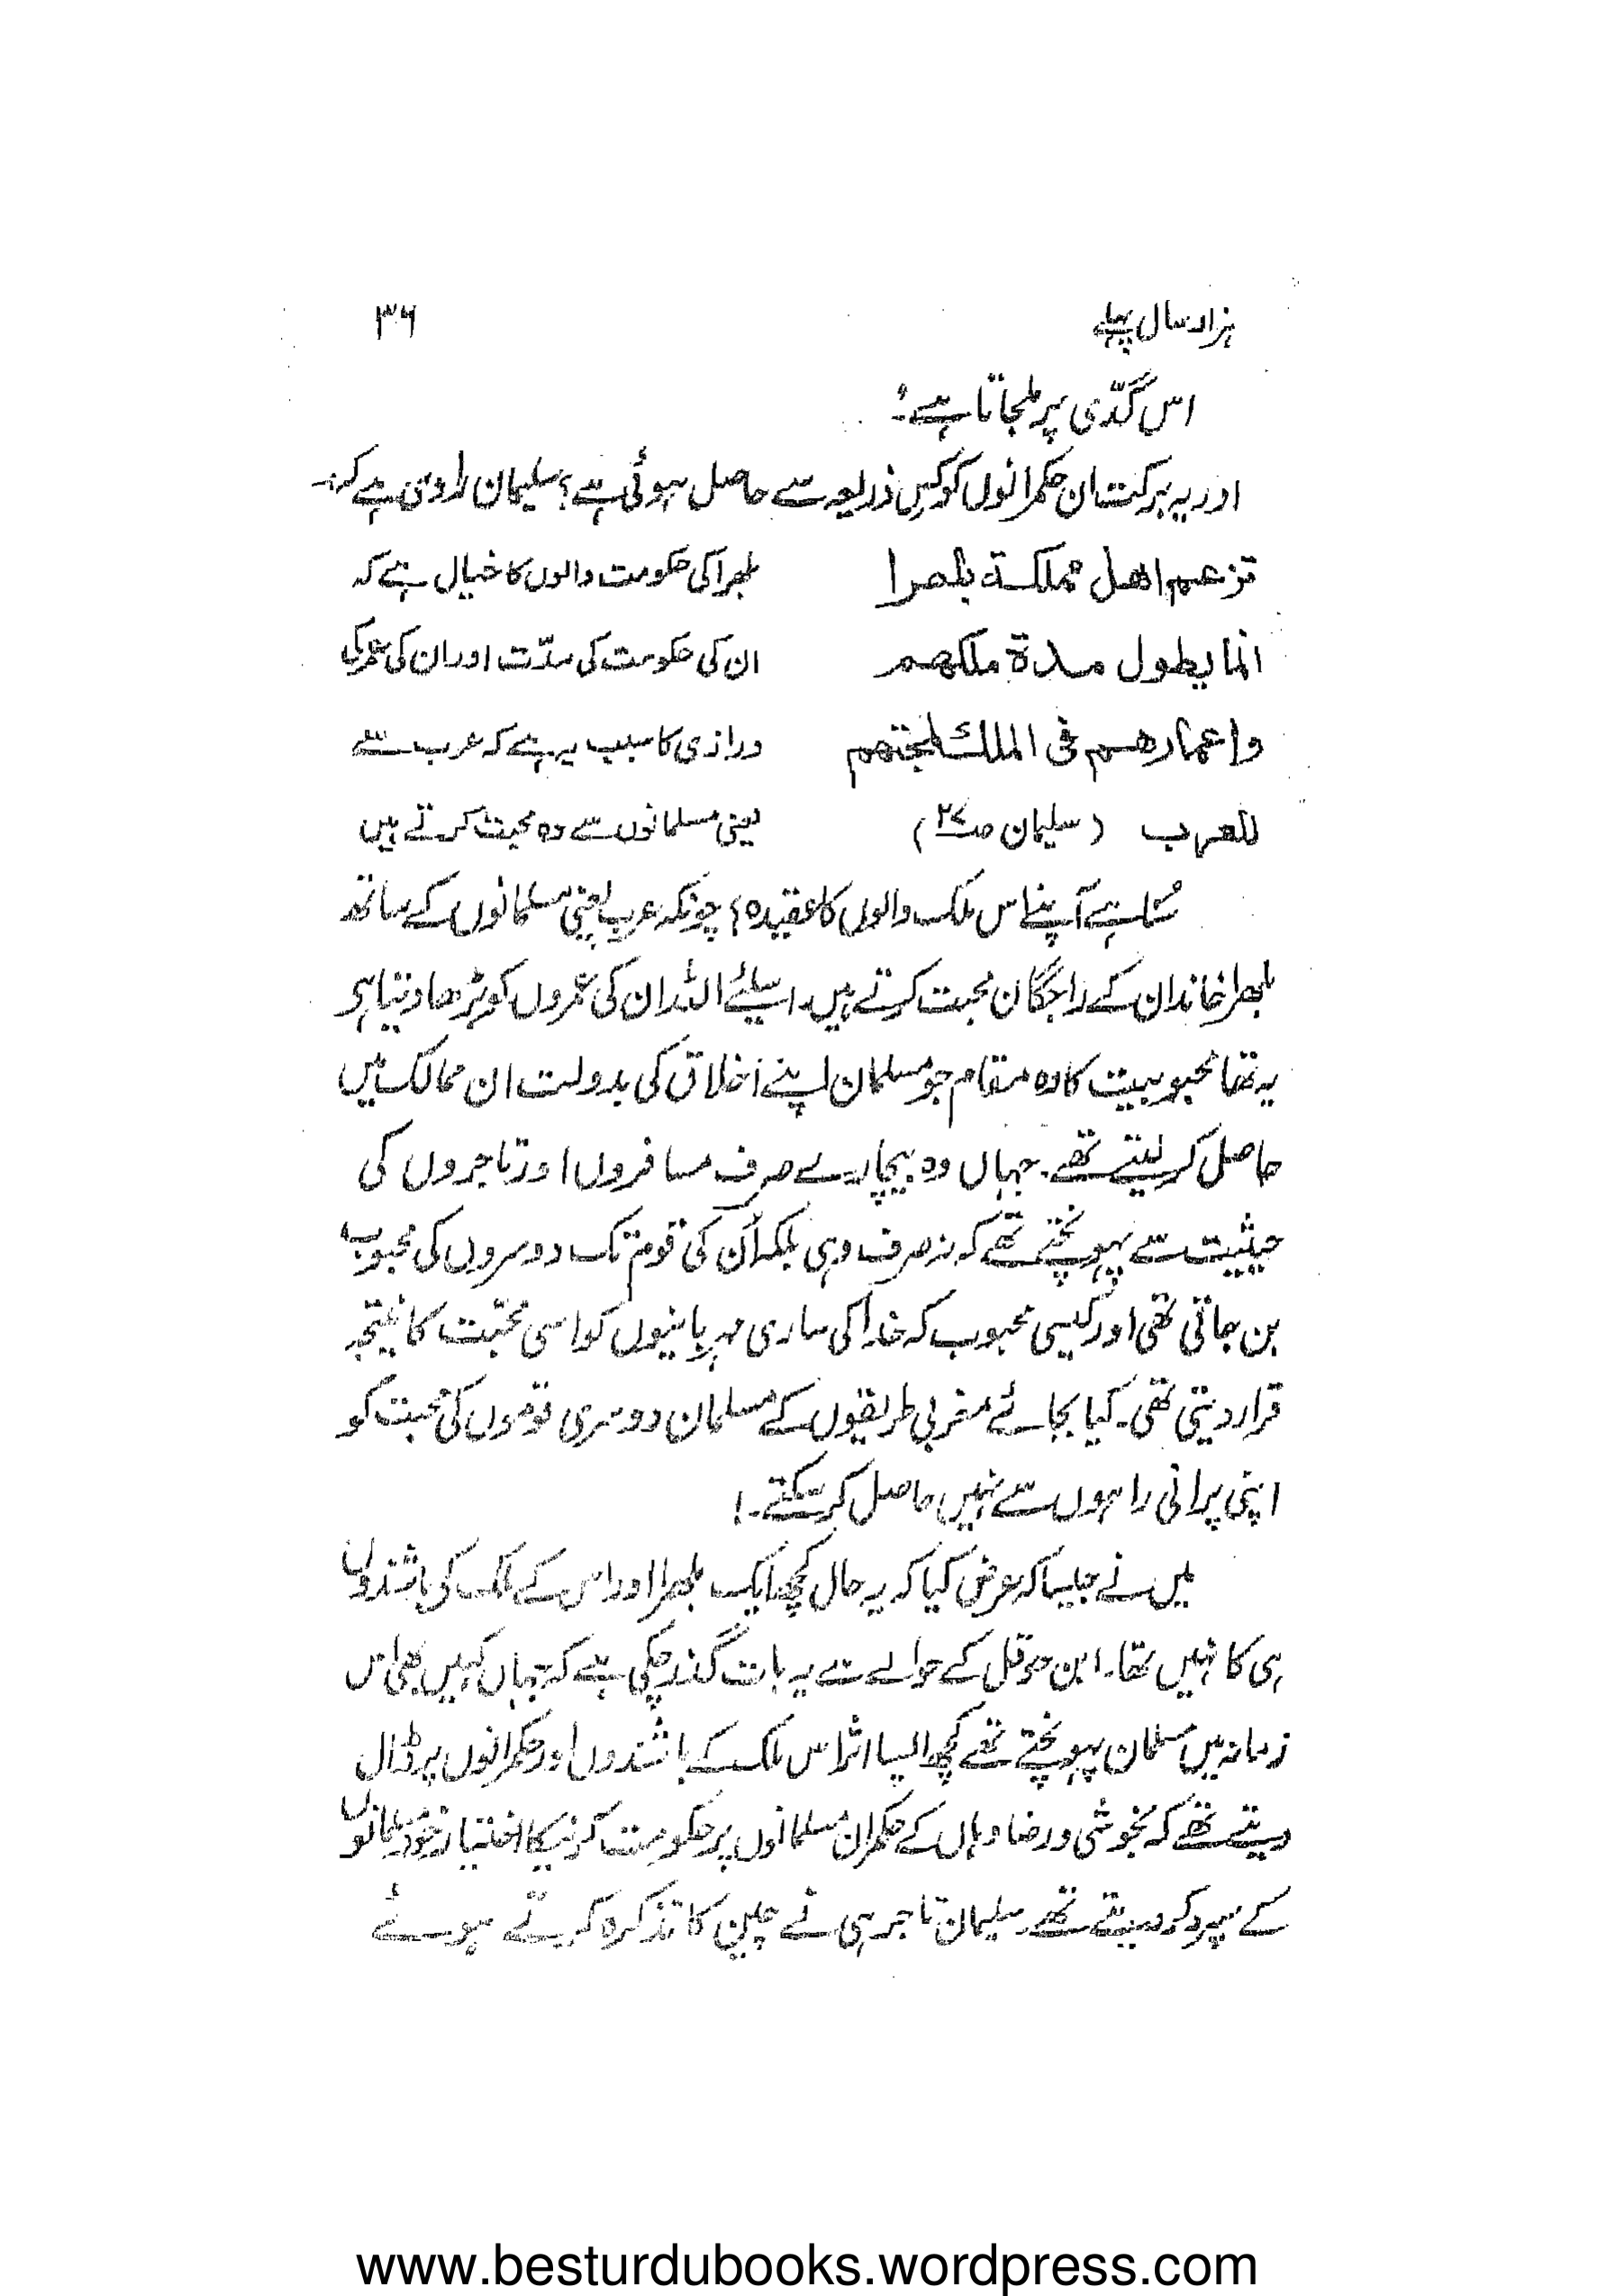 ہزار سال پہلے ۳۶
اس گدّی پر ملجاتا ہے۔
اور یہ برکت ان حکمرانوں کو کس ذریعہ سے حاصل ہوئی ہے؟ سلیمان راوی ہے کہ:۔
تزعم اهل مملكة بلهرا
انما يطول مدة ملكهم
واعمارهم فى الملك لمحبتهم
للعرب (سلیمان صـ۲۷)
بلہرا کی حکومت والوں کا خیال ہے کہ
ان کی حکومت کی مدّت اور ان کی عمر کی
درازی کا سبب یہ ہے کہ عرب سے
یعنی مسلمانوں سے وہ محبت کرتے ہیں
سُنا ہے آپنے اس ملک والوں کا عقیدہ؟ چونکہ عرب یعنی مسلمانوں کے ساتھ
بلھرا خاندان کے راجگان محبت کرتے ہیں۔ اسلئے اللہ ان کی عمروں کو بڑھا دیتا ہی
یہ تھا محبوبیت کا وہ مقام جو مسلمان اپنے اخلاق کی بدولت ان ممالک میں
حاصل کر لیتے تھے۔ جہاں وہ بیچارے صرف مسافروں اور تاجروں کی
حیثیت سے پہونچتے تھے کہ نہ صرف وہی بلکہ اُن کی قوم تک دوسروں کی محبوب
بن جاتی تھی اور کیسی محبوب کہ خدا کی ساری مہربانیوں کو اسی محبّت کا نتیجہ
قرار دیتی تھی۔ کیا بجائے مغربی طریقوں کے مسلمان دوسری قوموں کی محبت کو
اپنی پرانی راہوں سے نہیں حاصل کر سکتے۔!
میں نے جیسا کہ عرض کیا کہ یہ حال کچھ ایک بلھرا اور اس کے ملک کی باشندوں
ہی کا نہیں تھا۔ ابن حوقل کے حوالے سے یہ بات گذر چکی ہے کہ جہاں کہیں بھی اس
زمانہ میں مسلمان پہونچتے تھے کچھ ایسا اثر اس ملک کے باشندوں اور حکمرانوں پر ڈال
دیتے تھے کہ بخوشی و رضا وہاں کے حکمران مسلمانوں پر حکومت کرنیکا اختیار خود مسلمانوں
کے سپرد کر دیتے تھے۔ سلیمان تاجر ہی نے چین کا تذکرہ کرتے ہوئے
www.besturdubooks.wordpress.com